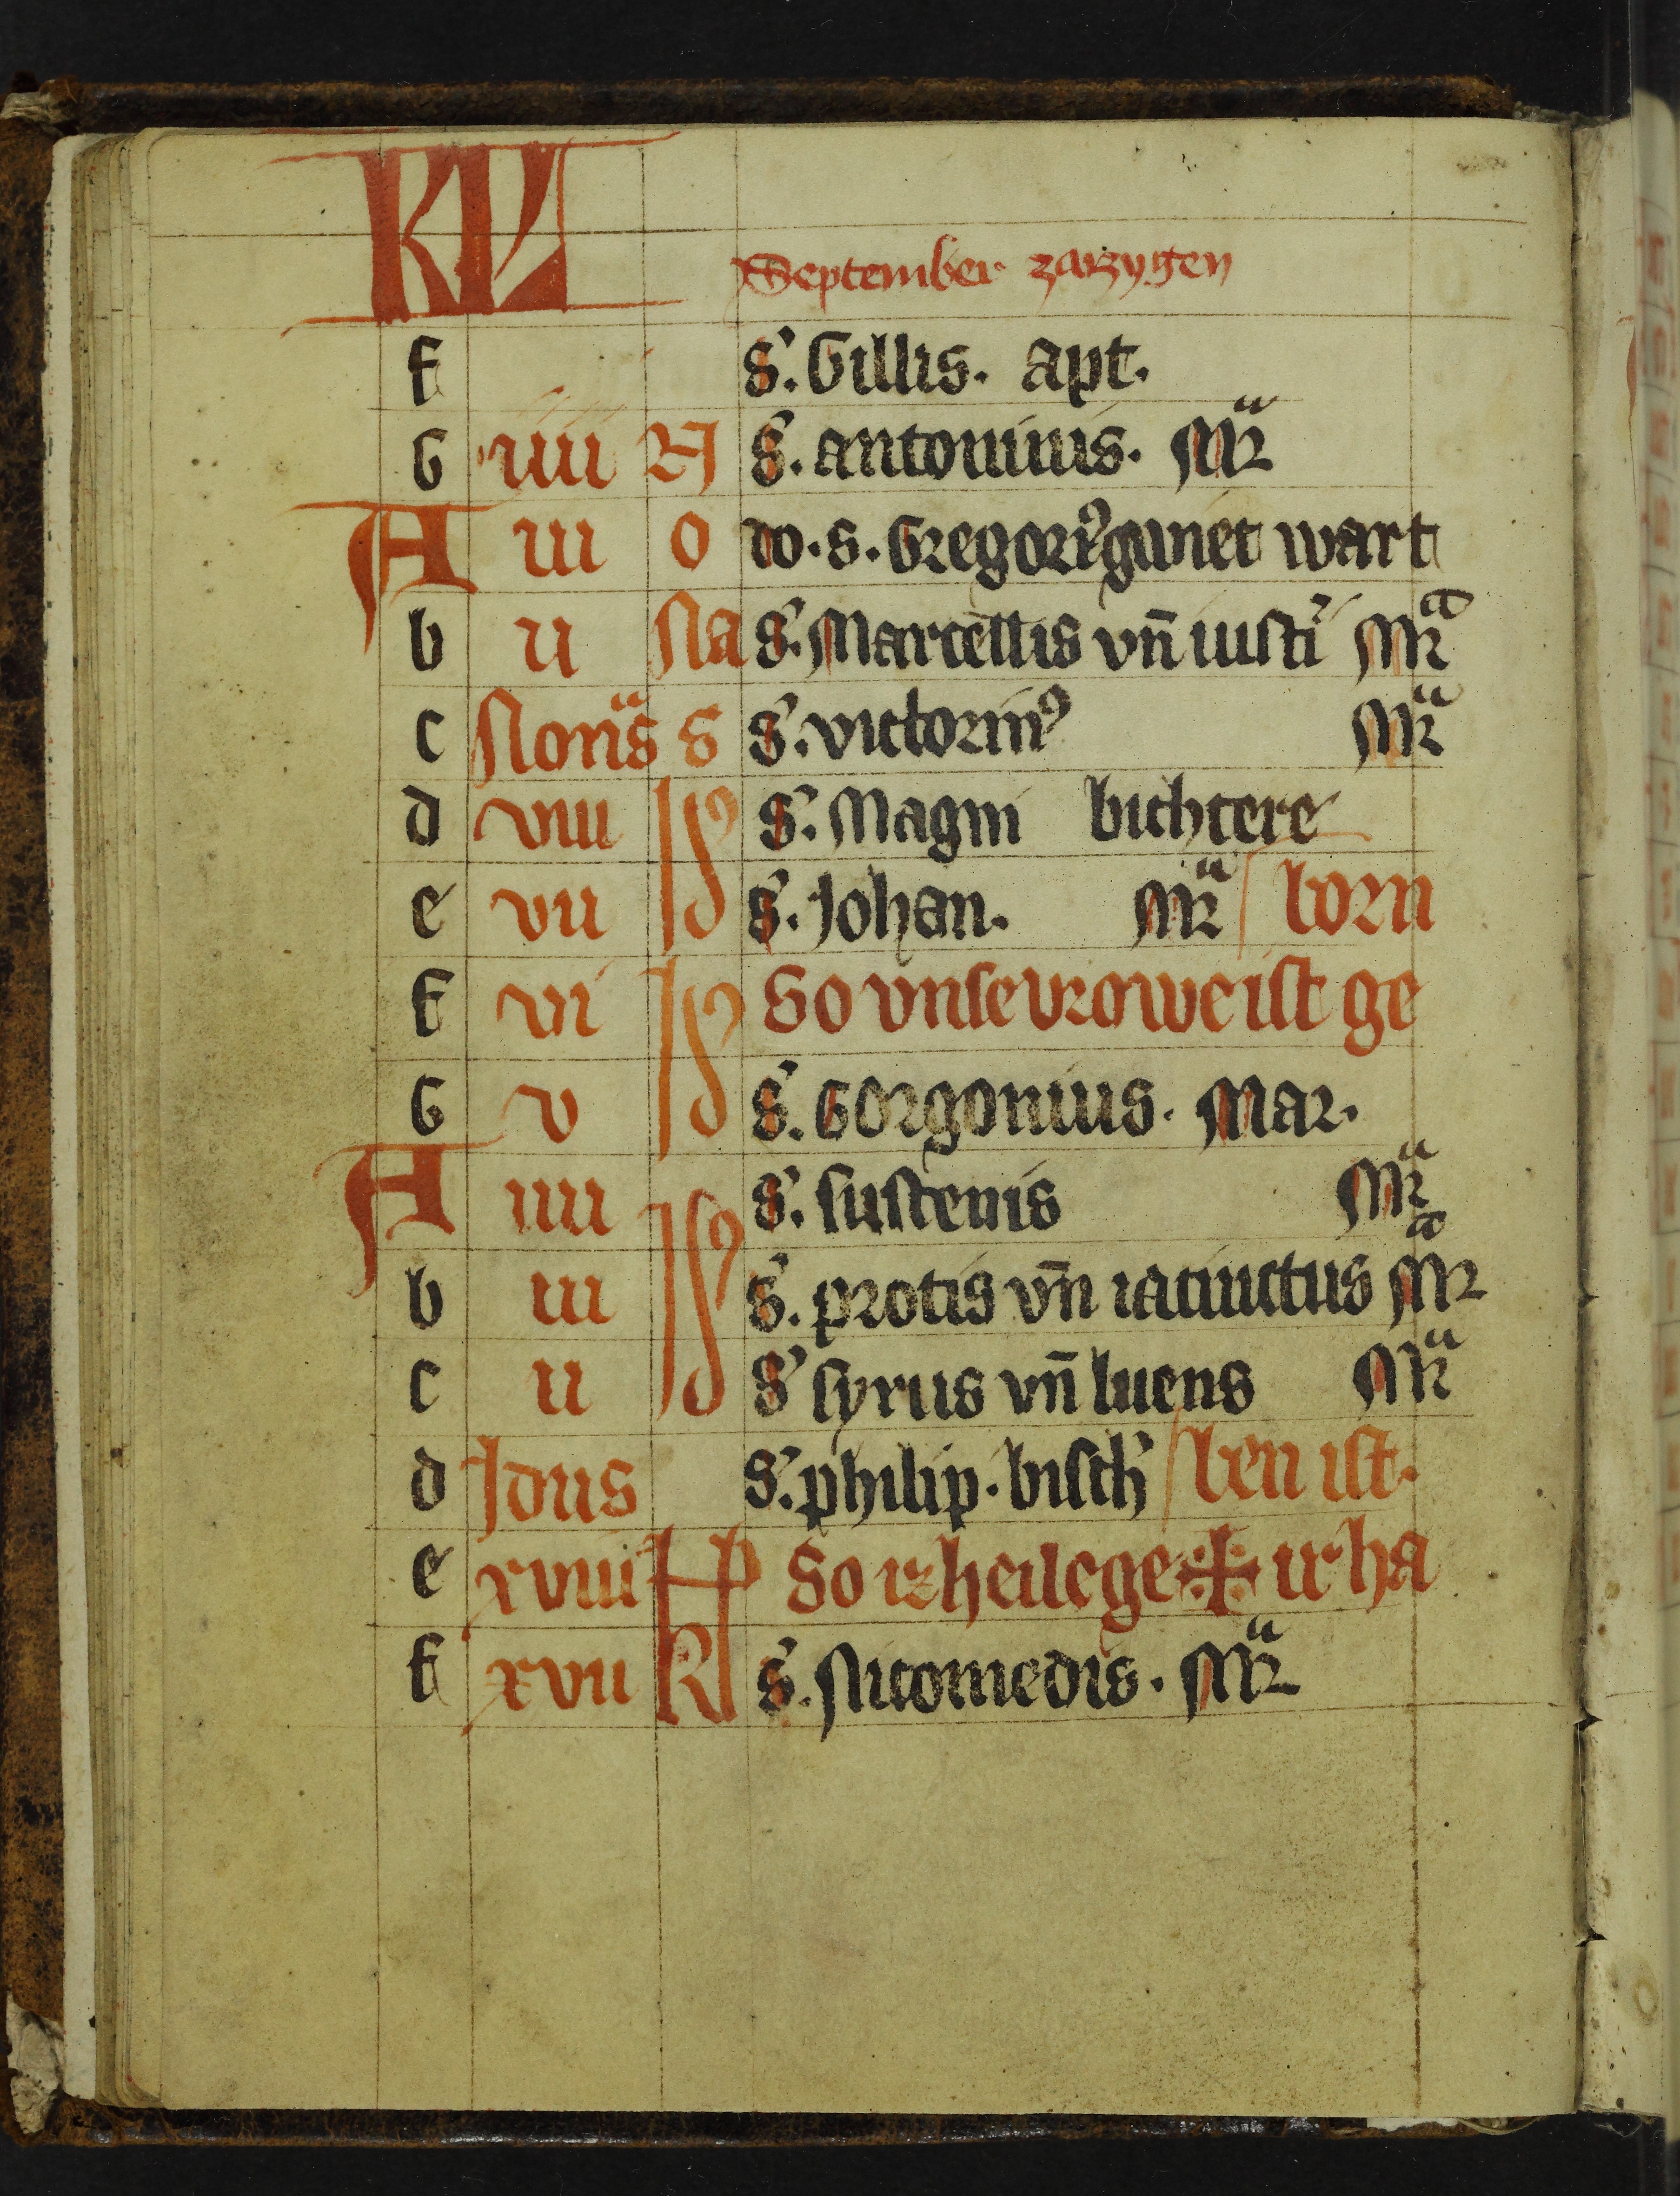 KL
September zarzygen
f S'. Gillis. apt.
G iiii N S'. antoninis. Mr̄a
A iii o do. S. Gregori9 gwiet wart
b ii Na S'. Marcellis vn̄ iusti' Mr̄a
c Nonas S S'. victorin9 Mr̄a
d viii Id9 S'. Magni bichtere
e vii Id9 S'. Johan. Mr̄a born
f vi Id9 So vnse vrowe ist ge
G v Id9 S'. Gorgonius. Mar.
A iiii Id9 S'. sustenis Mr̄a
b iii S'. protis vn̄ iacinctus Mr̄a
c ii Id9 S' syrus vn̄ luens Mr̄a
d Idus S'. philip. bisch' ben ist.
e xviii kl So iz heilege ✠ ir ha
f xvii Kl S'. Nicomedis. Mr̄a